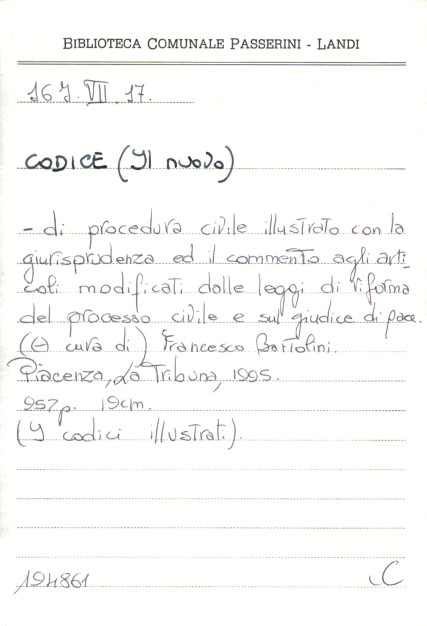 BIBLIOTECA COMUNALE PASSERINI - LANDI
16 J. VII. 17.
CODICE (Il nuovo)
- di procedura civile illustrato con la
giurisprudenza ed il commento agli arti-
coli modificati dalle leggi di riforma
del processo civile e sul giudice di pace.
(A cura di) Francesco Bartolini.
Piacenza, La Tribuna, 1995.
957 p. 19 cm.
(I codici illustrati).
194861
C